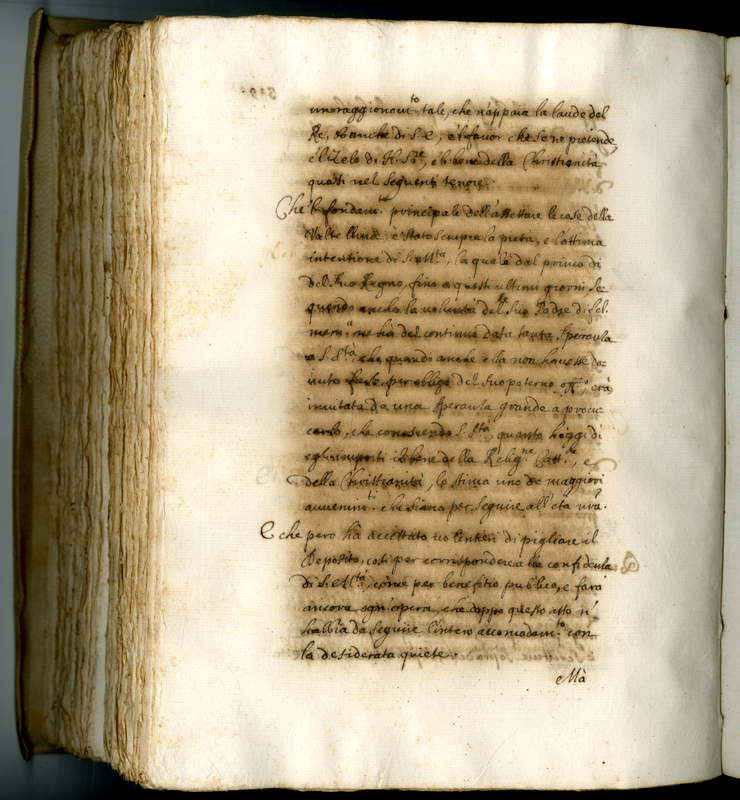 un raggionam.to tale, che n'appaia la laude del
Rè, et anche di S. E., e'l favor che se ne pretende,
e'l Zelo di N. S.re, e'l bene della Christianità
quasi nel seguenti tenore.
Che'l fondam.to principale dell'assettare le cose della
Valtellina, è stato sempre la pietà, e l'ottima
intentione di S. M.tà, la quale dal primo dì
del suo Regno, fino a questi ultimi giorni, se-
guendo anche la volontà del Rè suo Padre di fel.
mem.a ne hà del continuo data tanta speranza
a S. S.tà, che quando anche ella non havesse do-
vuto farlo per obligo del suo paterno off.o, era
invitata da una speranza grande a procu-
rarlo, che conoscendo S. S.tà quanto hoggi dì
egli importi il bene della Relig.ne Catt.ca, e
della Christianità, lo stima uno de maggiori
avvenim.ti che siano per seguire all'età nra.
E che però hà accettato volentieri di pigliare il
Deposito, così per corrispondere alla confidenza
di S. M.tà, come per benefitio publico, e farà
ancora ogn'opera, che doppo questo atto n'
habbia da seguire l'intero accomodam.to con
la desiderata quiete.
Mà